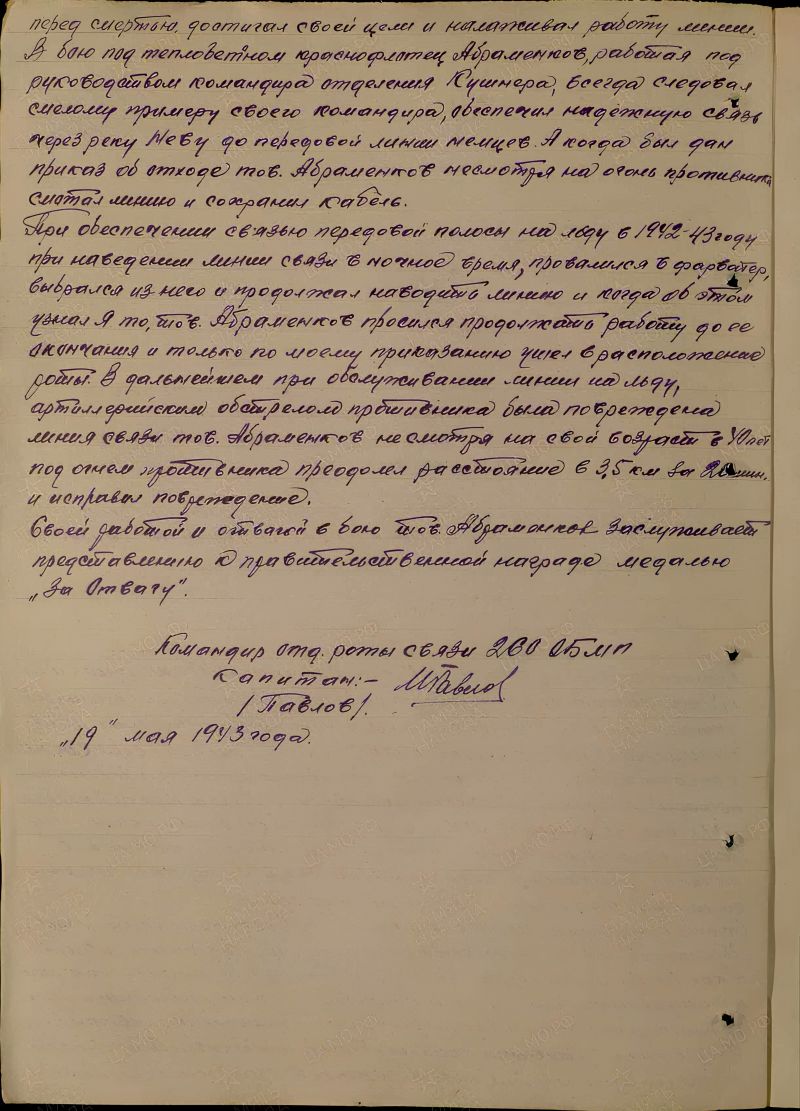 перед смертью, достигал своей цели и налаживал работу линии.
В бою под тепловетном краснофлотец Абраменков, работая под
руководством командира отделения Кушнера, всегда следовал
смелому примеру своего командира, обеспечил надежную связь
через реку Неву до передовой линии немцев. А когда был дан
приказ об отходе тов. Абраменков несмотря на огонь противника
смотал линию и сохранил кабель.
При обеспечении связью передовой полосы на льду в 1942-43 году
при наведении линии связи в ночное время, провалился в фарватер,
выбрался из него и продолжал наводить линию и когда об этом
узнал я то, тов. Абраменков просился продолжать работу до ее
окончания и только по моему приказанию ушел в расположение
роты. В дальнейшем при обслуживании линии на льду,
артиллерийским обстрелом противника была повреждена
линия связи тов. Абраменков несмотря на свой возраст в 40 лет
под огнем противника преодолел расстояние в 3,5 км за 20 мин.
и исправил повреждение.
Своей работой и отвагой в бою тов. Абраменков заслуживает
представлению к правительственной награде медалью
„За Отвагу".
Командир отд. роты связи 260 ОБМП
Капитан:-
/Павлов/.
„19" мая 1943 года.